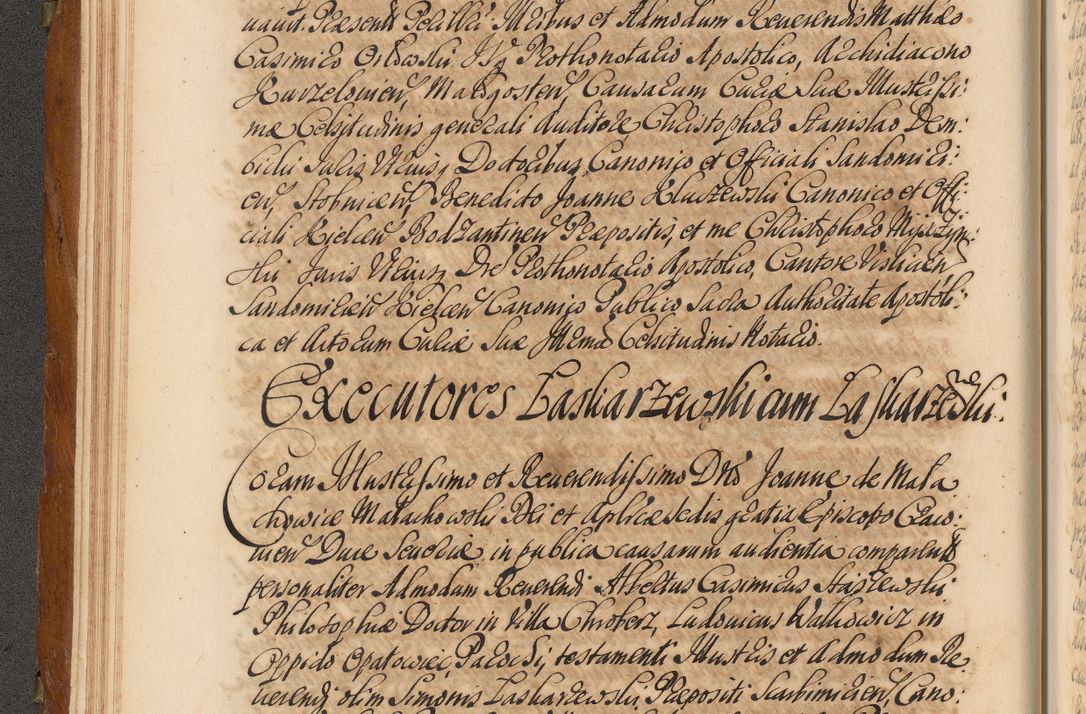 Praesentibus Perillribus et Admodum Reverendis Matthaeo
Casimiro Orłowski JUD Prothonotario Apostolico, Archidiacono
Kurzelovien, Małogosten, Causarum Curiae Suae Illustrissi:
mae Celsitudinis generali Auditore, Christophoro Stanislao Dem:
bicki Juris Utriusq Doctoribus, Canonico et Officiali Sandomiri:
en, Stobnicen, Benedicto Joanne Kluczewski Canonico et Offi:
ciali Kielcen Bodzantinen Praepositis, et me Christophoro
ski Juris Utriusq Dre Prothonotario Apostolico, Cantore Vislicien
Sandomirien Kielcen Canonico Publico Sacra Authoritate Apostoli:
ca et Actorum Curiae Suae Illmae Celsitudinis Notario.
Executores Laskarzewski cum Laskarzewski:
Coram Illustrissimo et Reverendissimo Dno Joanne de Mala
chowice Małachowski Dei et Aplicae Sedis gratia Episcopo Craco:
vien Duce Severiae in publica causarum audientia comparentes
personaliter Admodum Reverendi Albertus Casimirus Staszewski
Philosophiae Doctor in Villa Chroberz, Ludovicus Walkowicz in
Oppido Opatowiec, Parochi, testamenti Illustris et Admodum Re
verendi olim Simonis Laskarzewski, Praepositi Skarbimirien, Cano: